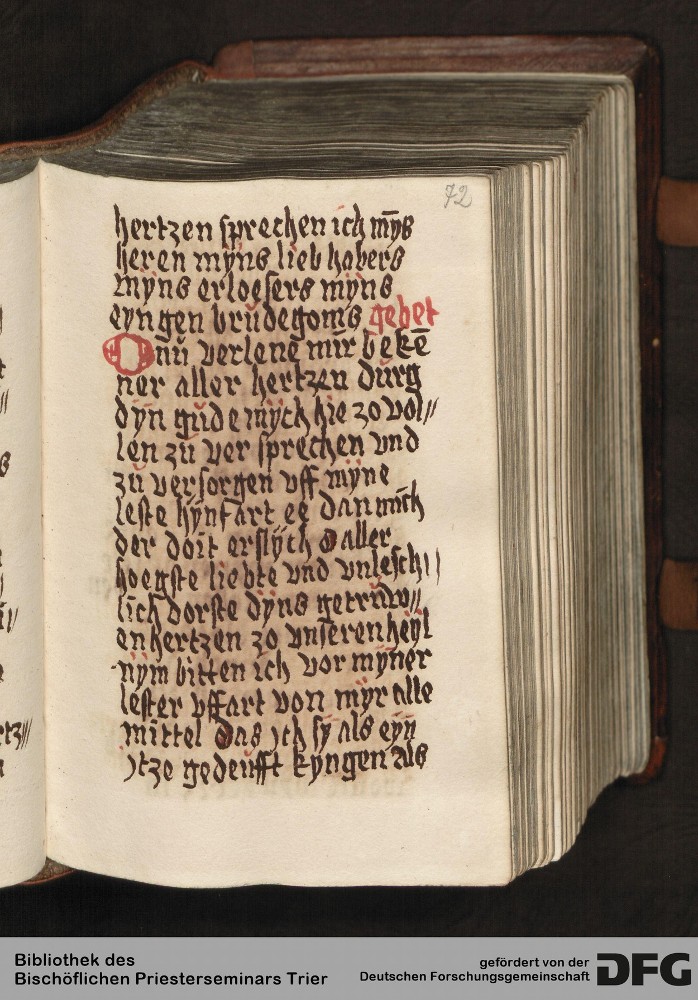 72
hertzen sprechen ich mȳs
heren myns lieb habers
myns erloesers myns
eyngen brudegoms gebet
O nu verlene mir bekē
ner aller hertzen durg
dyn gude mych hie zo vol//
len zu ver sprechen vnd
zu versorgen vff myne
leste hynfart ee dan mich
der doit erslych O aller
hoegste liebte vnd vnlesch//
lich dorste dyns getruw//
en hertzen zo vnseren heyl
nym bitten ich vor myner
lester vffart von myr alle
mittel das ich sy als eyn
itze gedeufft kyngen als
Bibliothek des
Bischöflichen Priesterseminars Trier
gefördert von der
Deutschen Forschungsgemeinschaft
DFG